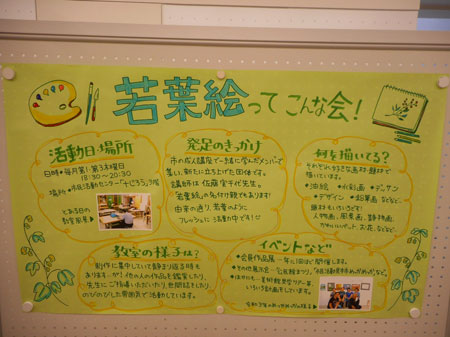 若葉絵ってこんな会!
活動日・場所
日時・毎月第1・第3木曜日
18:30〜20:30
場所・市民活動センター「
3階
とある日の
教室風景
発足のきっかけ
市の成人講座で一緒に学んだメンバーで
集い、新たに立ち上げた団体です。
講師は佐藤
先生。
「若葉絵」の名付け親でもあります!
由来の通り、若葉のように
フレッシュに活動中です!
何を描いてる?
それぞれ好きな画材・題材で
描いています。
・油絵 ・水彩画 ・デッサン
・デザイン ・鉛筆画 などなど…
題材もいろいろです!
人物画、風景画、静物画、
かわいいペット、お花、などなど…
教室の様子は?
制作に集中していて静まり返る時も
ありますが!他の人の作品を鑑賞したり、
先生にご指導いただいたり、世間話をしたり、
のびのびした雰囲気で活動しています。
イベントなど
・会員作品展…年に1回ほど開催します。
・その他展示会…公民館まつり、
・ほかにも…美術館見学ツアー等、
いろいろ計画をしています。